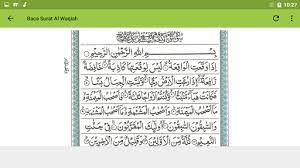 10:27
Baca Surat Al Waqiah
بِسْمِ اللهِ الرَّحْمٰنِ الرَّحِيْمِ
اِذَا وَقَعَتِ الْوَاقِعَةُ لَيْسَ لِوَقْعَتِهَا كَاذِبَةٌ خَافِضَةٌ
رَافِعَةٌ اِذَا رُجَّتِ الْاَرْضُ رَجًّا وَبُسَّتِ الْجِبَالُ بَسًّا
فَكَانَتْ هَبَاءً مُنْبَثًّا وَكُنْتُمْ اَزْوَاجًا ثَلٰثَةً فَاَصْحٰبُ الْمَيْمَنَةِ
مَا اَصْحٰبُ الْمَيْمَنَةِ وَاَصْحٰبُ الْمَشْئَمَةِ مَا اَصْحٰبُ الْمَشْئَمَةِ
وَالسّٰبِقُوْنَ السّٰبِقُوْنَ اُولٰئِكَ الْمُقَرَّبُوْنَ فِيْ جَنّٰتِ
النَّعِيْمِ ثُلَّةٌ مِنَ الْاَوَّلِيْنَ وَقَلِيْلٌ مِنَ الْاٰخِرِيْنَ